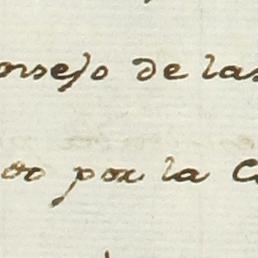 onsejo de las
por la